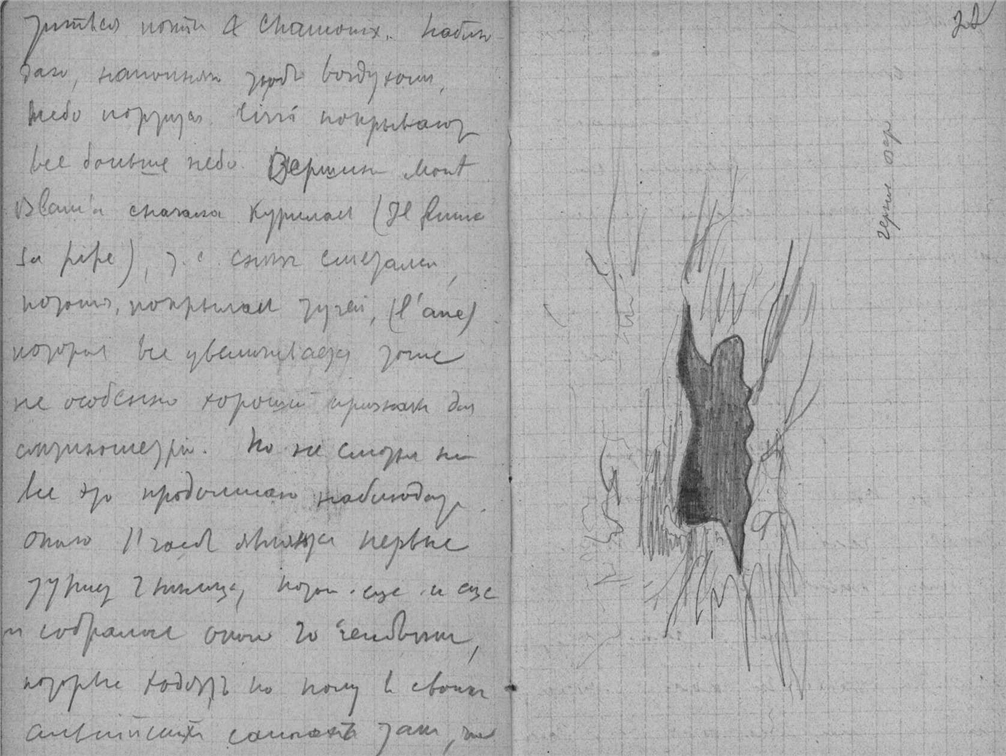 зиться почти в Chamonix. Наблю
даю, наполняю грудь воздухом,
Небо портится. Cirri покрывают
все больше небо. Вершина Mont
Blanc'а сначала курилась (Il fume
sa pipe), т.е снег сметался,
потом, покрылась тучей, (l'âne)
которая все увеличивается тоже
не особенно хороший признак для
Но не смотря на
все это продолжаю наблюдать.
около 11 часов явились первые
потом еще и еще
и собралось около 20 человек,
которые ходят по полу в своих
английских сапогах так, что
22
черное озеро